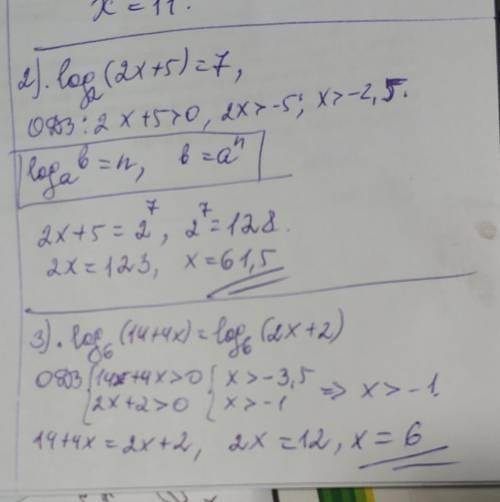 x = 11.
2). log₂(2x+5)=7,
ОДЗ: 2x+5>0, 2x>-5; x>-2,5.
logₐb = n, b = aⁿ
2x+5 = 2⁷, 2⁷=128.
2x=123, x=61,5
3). log₆(14+4x)=log₆(2x+2)
ОДЗ {14+4x>0 {x>-3,5
{2x+2>0 {x>-1 => x>-1
14+4x=2x+2, 2x=12, x=6